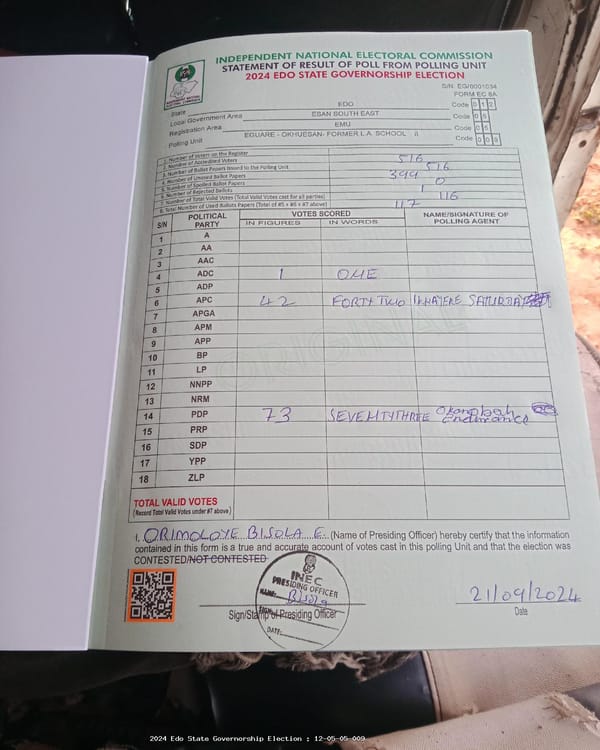 INDEPENDENT NATIONAL ELECTORAL COMMISSION
STATEMENT OF RESULT OF POLL FROM POLLING UNIT
2024 EDO STATE GOVERNORSHIP ELECTION
S/N EG/0001034
FORM EC 8A
State EDO Code 1 2
Local Government Area ESAN SOUTH EAST Code 0 5
Registration Area EMU Code 0 5
Polling Unit EGUARE - OKHUESAN- FORMER L.A. SCHOOL II Code 0 0 9
1. Number of Voters on the Register 516
2. Number of Accredited Voters
3. Number of Ballot Papers Issued to the Polling Unit 516
4. Number of Unused Ballot Papers 399
5. Number of Spoiled Ballot Papers 0
6. Number of Rejected Ballots 1
7. Number of Total Valid Votes (Total Valid Votes cast for all parties) 116
8. Total Number of Used Ballots Papers (Total of #5 + #6 + #7 above) 117
S/N POLITICAL PARTY VOTES SCORED NAME/SIGNATURE OF POLLING AGENT
IN FIGURES IN WORDS
1 A
2 AA
3 AAC
4 ADC 1 ONE
5 ADP
6 APC 42 FORTY TWO
7 APGA
8 APM
9 APP
10 BP
11 LP
12 NNPP
13 NRM
14 PDP 73 SEVENTYTHREE Endurance
15 PRP
16 SDP
17 YPP
18 ZLP
TOTAL VALID VOTES
(Record Total Valid Votes under #7 above)
I, ORIMOLOYE BISOLA E. (Name of Presiding Officer) hereby certify that the information
contained in this form is a true and accurate account of votes cast in this polling Unit and that the election was
CONTESTED/NOT CONTESTED
INEC
PRESIDING OFFICER
NAME: Bisola
SIGN:
DATE:
21/09/2024
Sign/Stamp of Presiding Officer
Date
2024 Edo State Governorship Election : 12-05-05-009